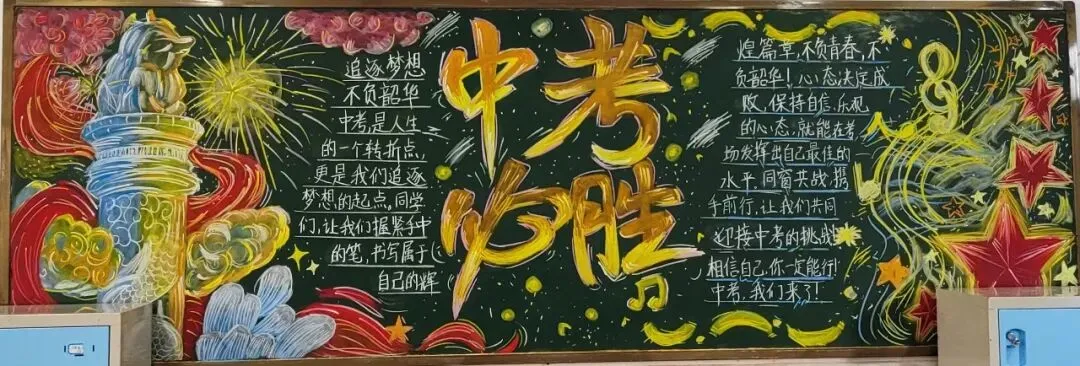 追逐梦想
不负韶华
中考,是人生
的一个转折点,
更是我们追逐
梦想的起点,同学
们,让我们握紧手中
的笔,书写属于
自己的辉
中考
必胜
煌篇章,不负青春,不
负韶华!心态决定成
败,保持自信、乐观
的心态,就能在考
场发挥出自己最佳的
水平,同窗共战,携
手前行,让我们共同
迎接中考的挑战
相信自己,你一定能行!
中考,我们来了!